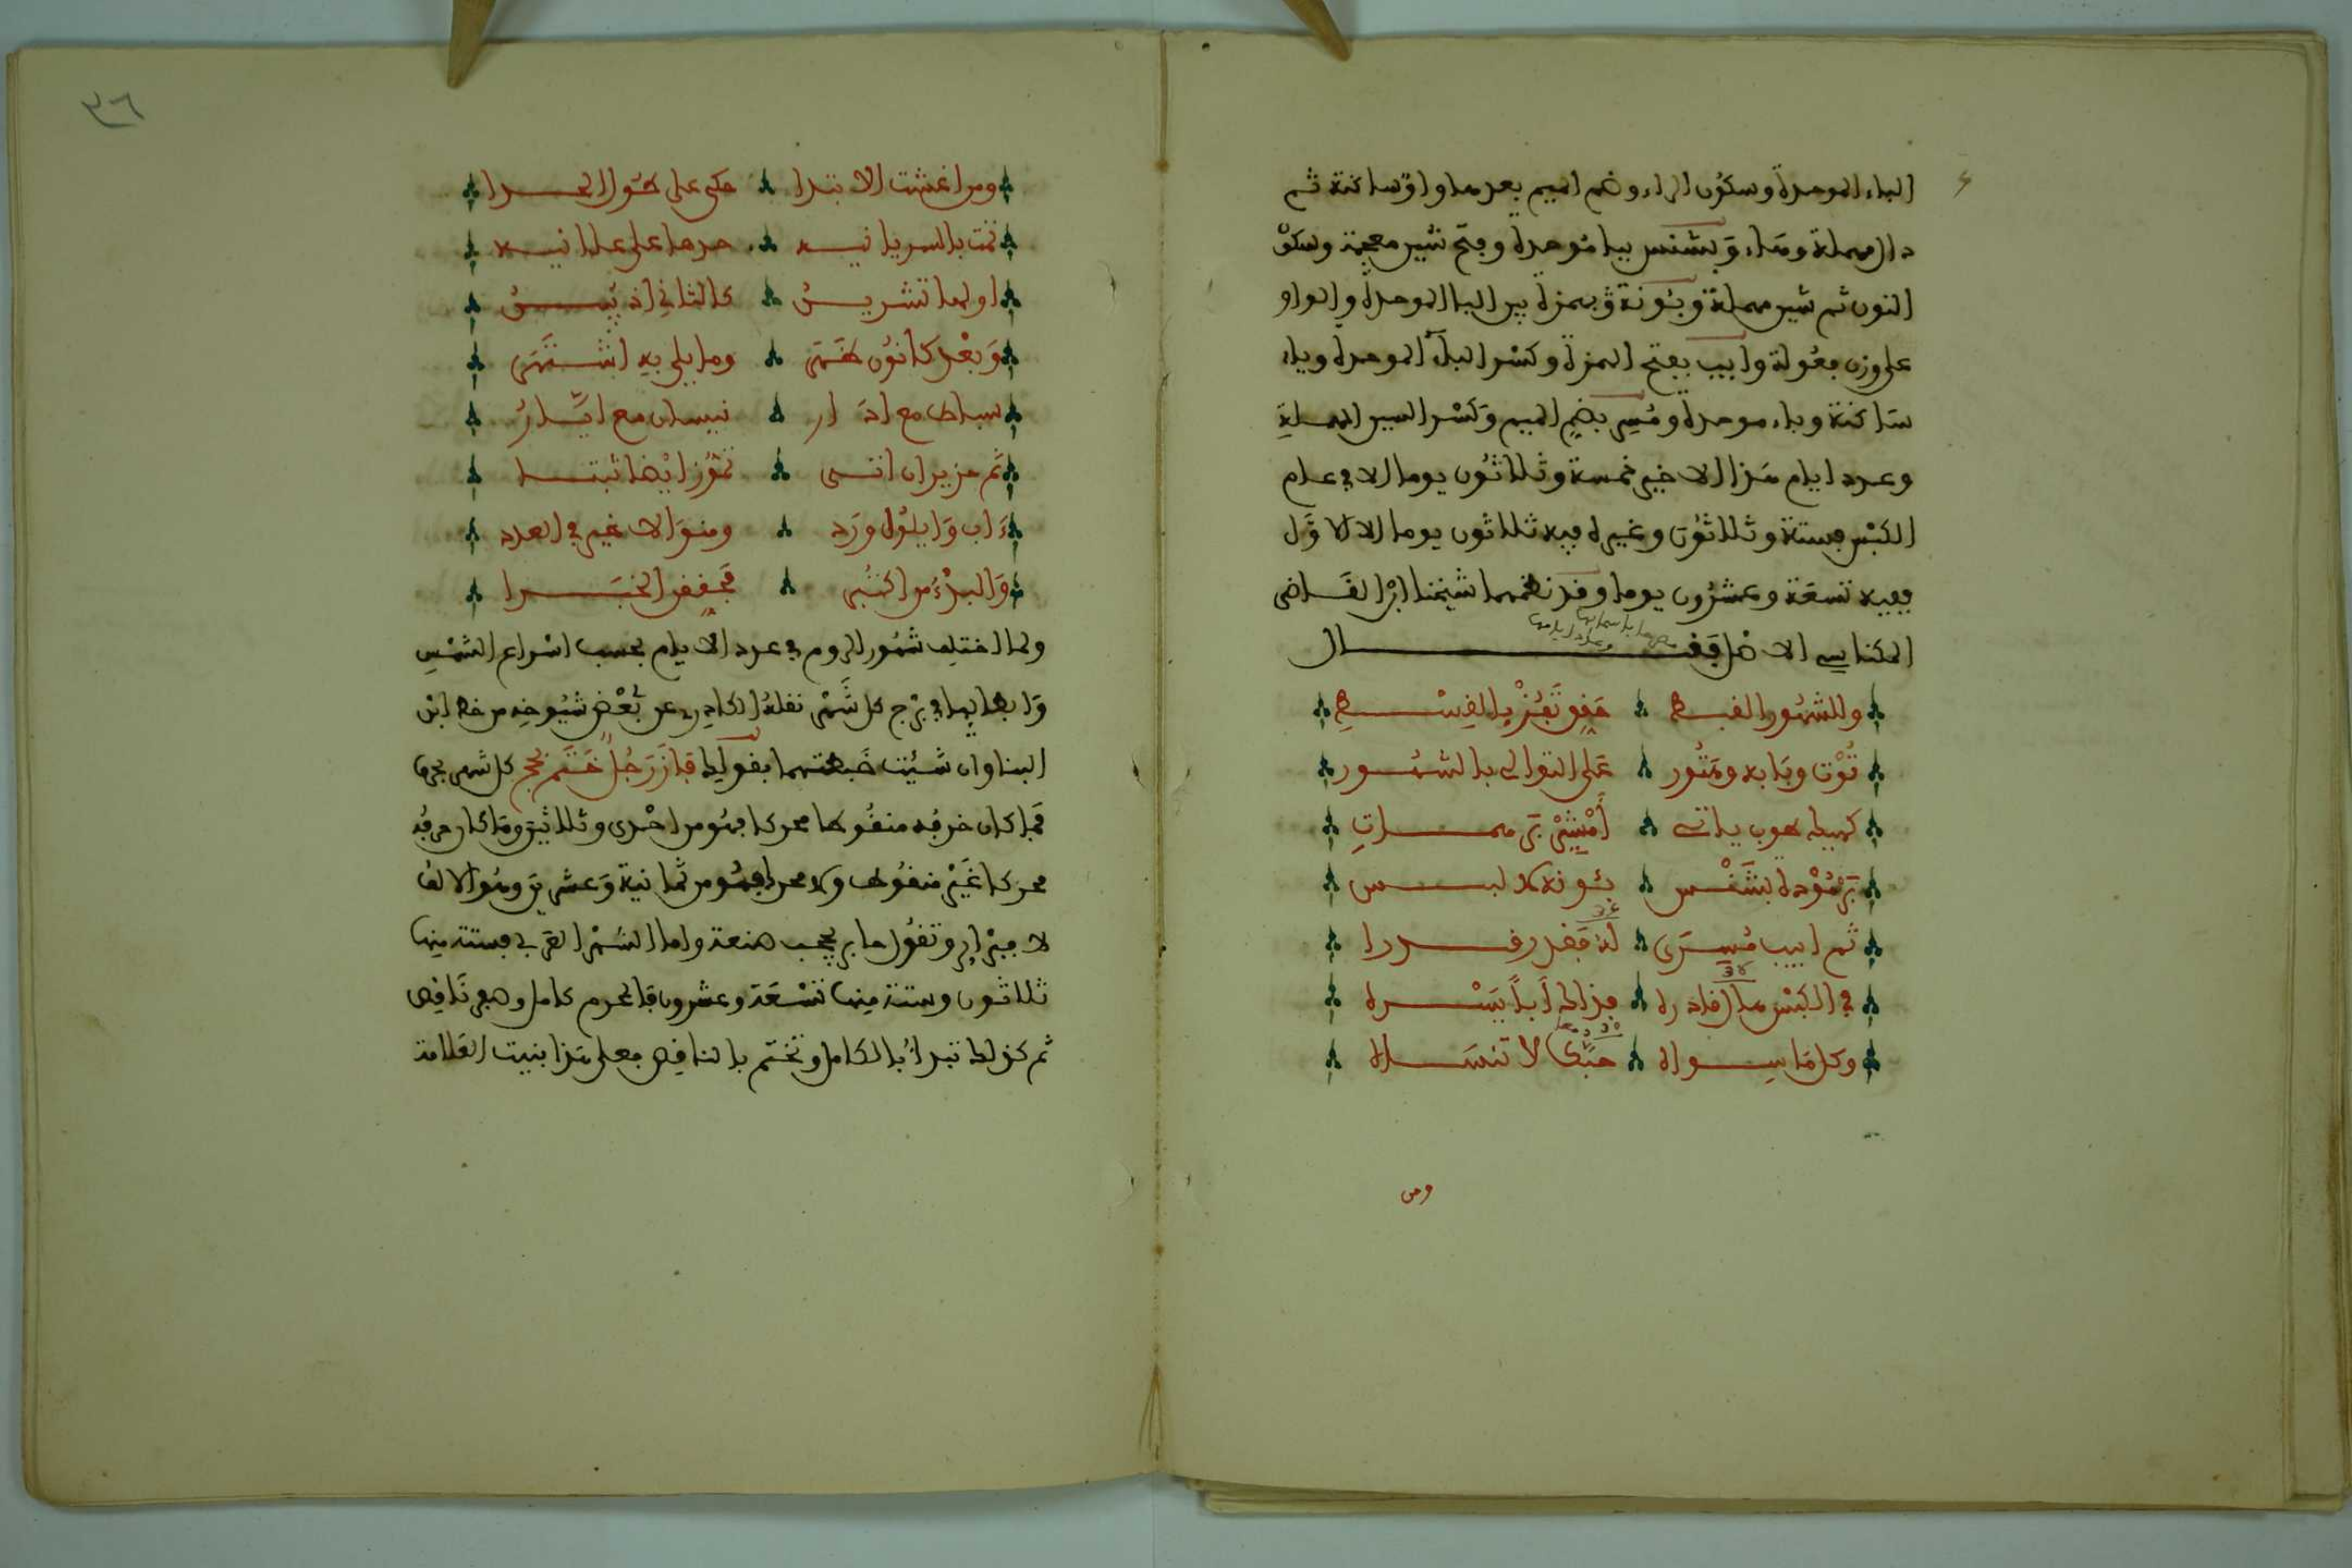 الباء الموحدة وسكون الراء وضم الميم بعدها واو ساكنة ثم
دال مهملة وهاء وبشنس ببا موحدة وفتح شين معجمة وسكو
النون ثم شين مهملة وبئونة وبهمزة بين البا الموحدة والواو
على وزن فعولة وابيب بفتح الهمزة وكسر الباء الموحدة وياء
ساكنة وباء موحدة ومسرى بضم الميم وكسر السين المهملة
وعدد ايام هذا الاخير خمسة وثلاثون يوما الا في عام
الكبس فستة وثلاثون وغيره فيه ثلاثون يوما الا الاول
ففيه تسعة وعشرون يوما وقد نظمها شيخنا ابن القاضي
المكناسي الاصل فقال
وللشهور القبط حقق تفز بالقسط
توت وبابه وهتور على التوالي بالشهور
كهيك طوب ياتي امشير برمهات
برمودة بشنس بئونة لا لبس
ثم ابيب مسرى له فقد
في الكبس فذاك ابدا يسره
وكل ما سواه لا تنساه
ومن
٣٦
ومن اغشت الابتدا حكى على طول المدا
تمت بالسريانيه خدها على علانيه
اولها تشرين كالثاني اذ يبين
وبعد كانون كمتى وما يلي به اشتهى
سباط مع اذار نيسان مع ايار
ثم حزيران اتى تموز ايضا ثبتا
ءاب وايلول ورد ومنوالا غير في العدد
والبدء من اكتبر فحقق الخبرا
ولما اختلف شهور الروم في عدد الايام بحسب اسراع الشمس
وابطايها في برج كل شهر نقله الكادري عن بعض شيوخه من خط ابن
البنا وان شيت ضبطتها بقولك فاز رجل ختم بحج كل شهر بحرف
فما كان حرفه منقوطا محركا فهو من احدى وثلاثين وما كان حرفه
محركا غير منقوط ولا محرك فهو من ثمانية وعشرين وهو الالف
لا فبراير وتقول ما بر يحجب هنعة واما الشهر القمري فستة منها
ثلاثون وستة منها تسعة وعشرون فالمحرم كامل وصفر ناقص
ثم كذلك تبدأ بالكامل وتختم بالناقص فعلى هذا بنيت العلامة